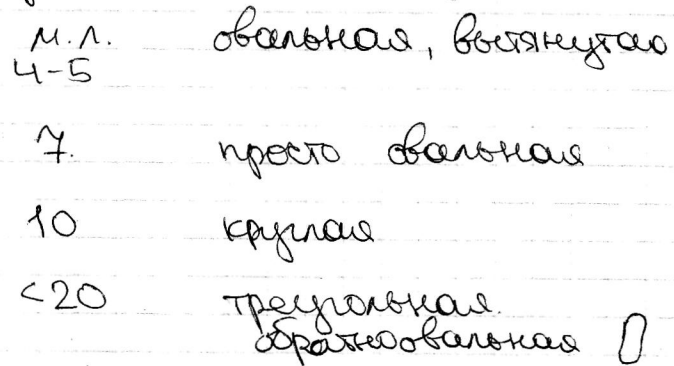 м.л. овальная, вытянутая
4-5
7. просто овальная
10 круглая
<20 треугольная.
обратноовальная